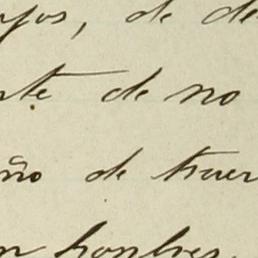 yos, de de
nte de no
ño de traer
n hombres,